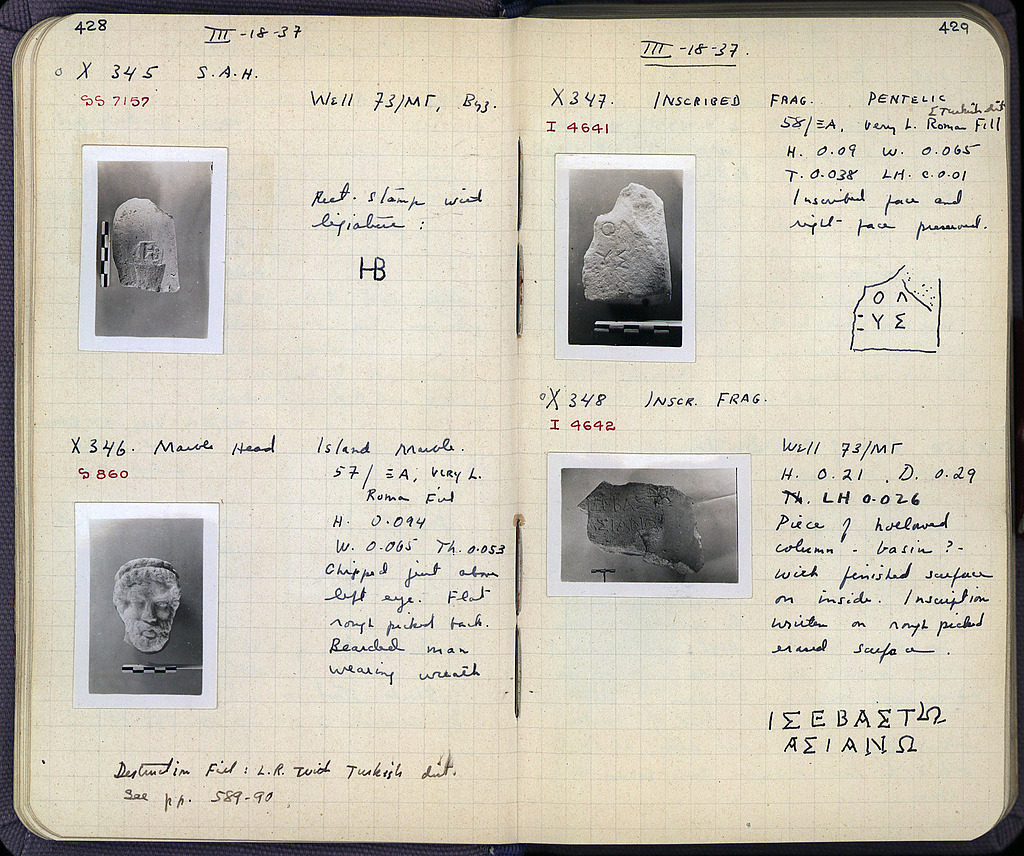 428
III-18-37
X 345 S.A.H.
SS 7157
Well 73/ΜΓ, Byz.
Rect. stamp with
ligature :
HB
X 346. Marble Head Island Marble.
S 860
57/ΞΑ, Very L.
Roman Fill
H. 0.094
W. 0.065 Th. 0.053
Chipped just above
left eye. Flat
rough picked back.
Bearded man
wearing wreath
Destruction Fill : L.R. with Turkish dist.
See pp. 589-90
429
III-18-37.
X 347. INSCRIBED FRAG. PENTELIC
I 4641
[Turkish dist
58/ΞΑ, Very L. Roman Fill
H. 0.09 W. 0.065
T. 0.038 LH. c. 0.01
Inscribed face and
right face preserved.
Ο Λ
Υ Σ
X 348 INSCR. FRAG.
I 4642
Well 73/ΜΓ
H. 0.21 . D. 0.29
Th. LH 0.026
Piece of hollowed
column - basin ? -
with finished surface
on inside. Inscription
written on rough picked
erased surface.
ΙΣΕΒΑΣΤΩ
ΑΣΙΑΝΩ